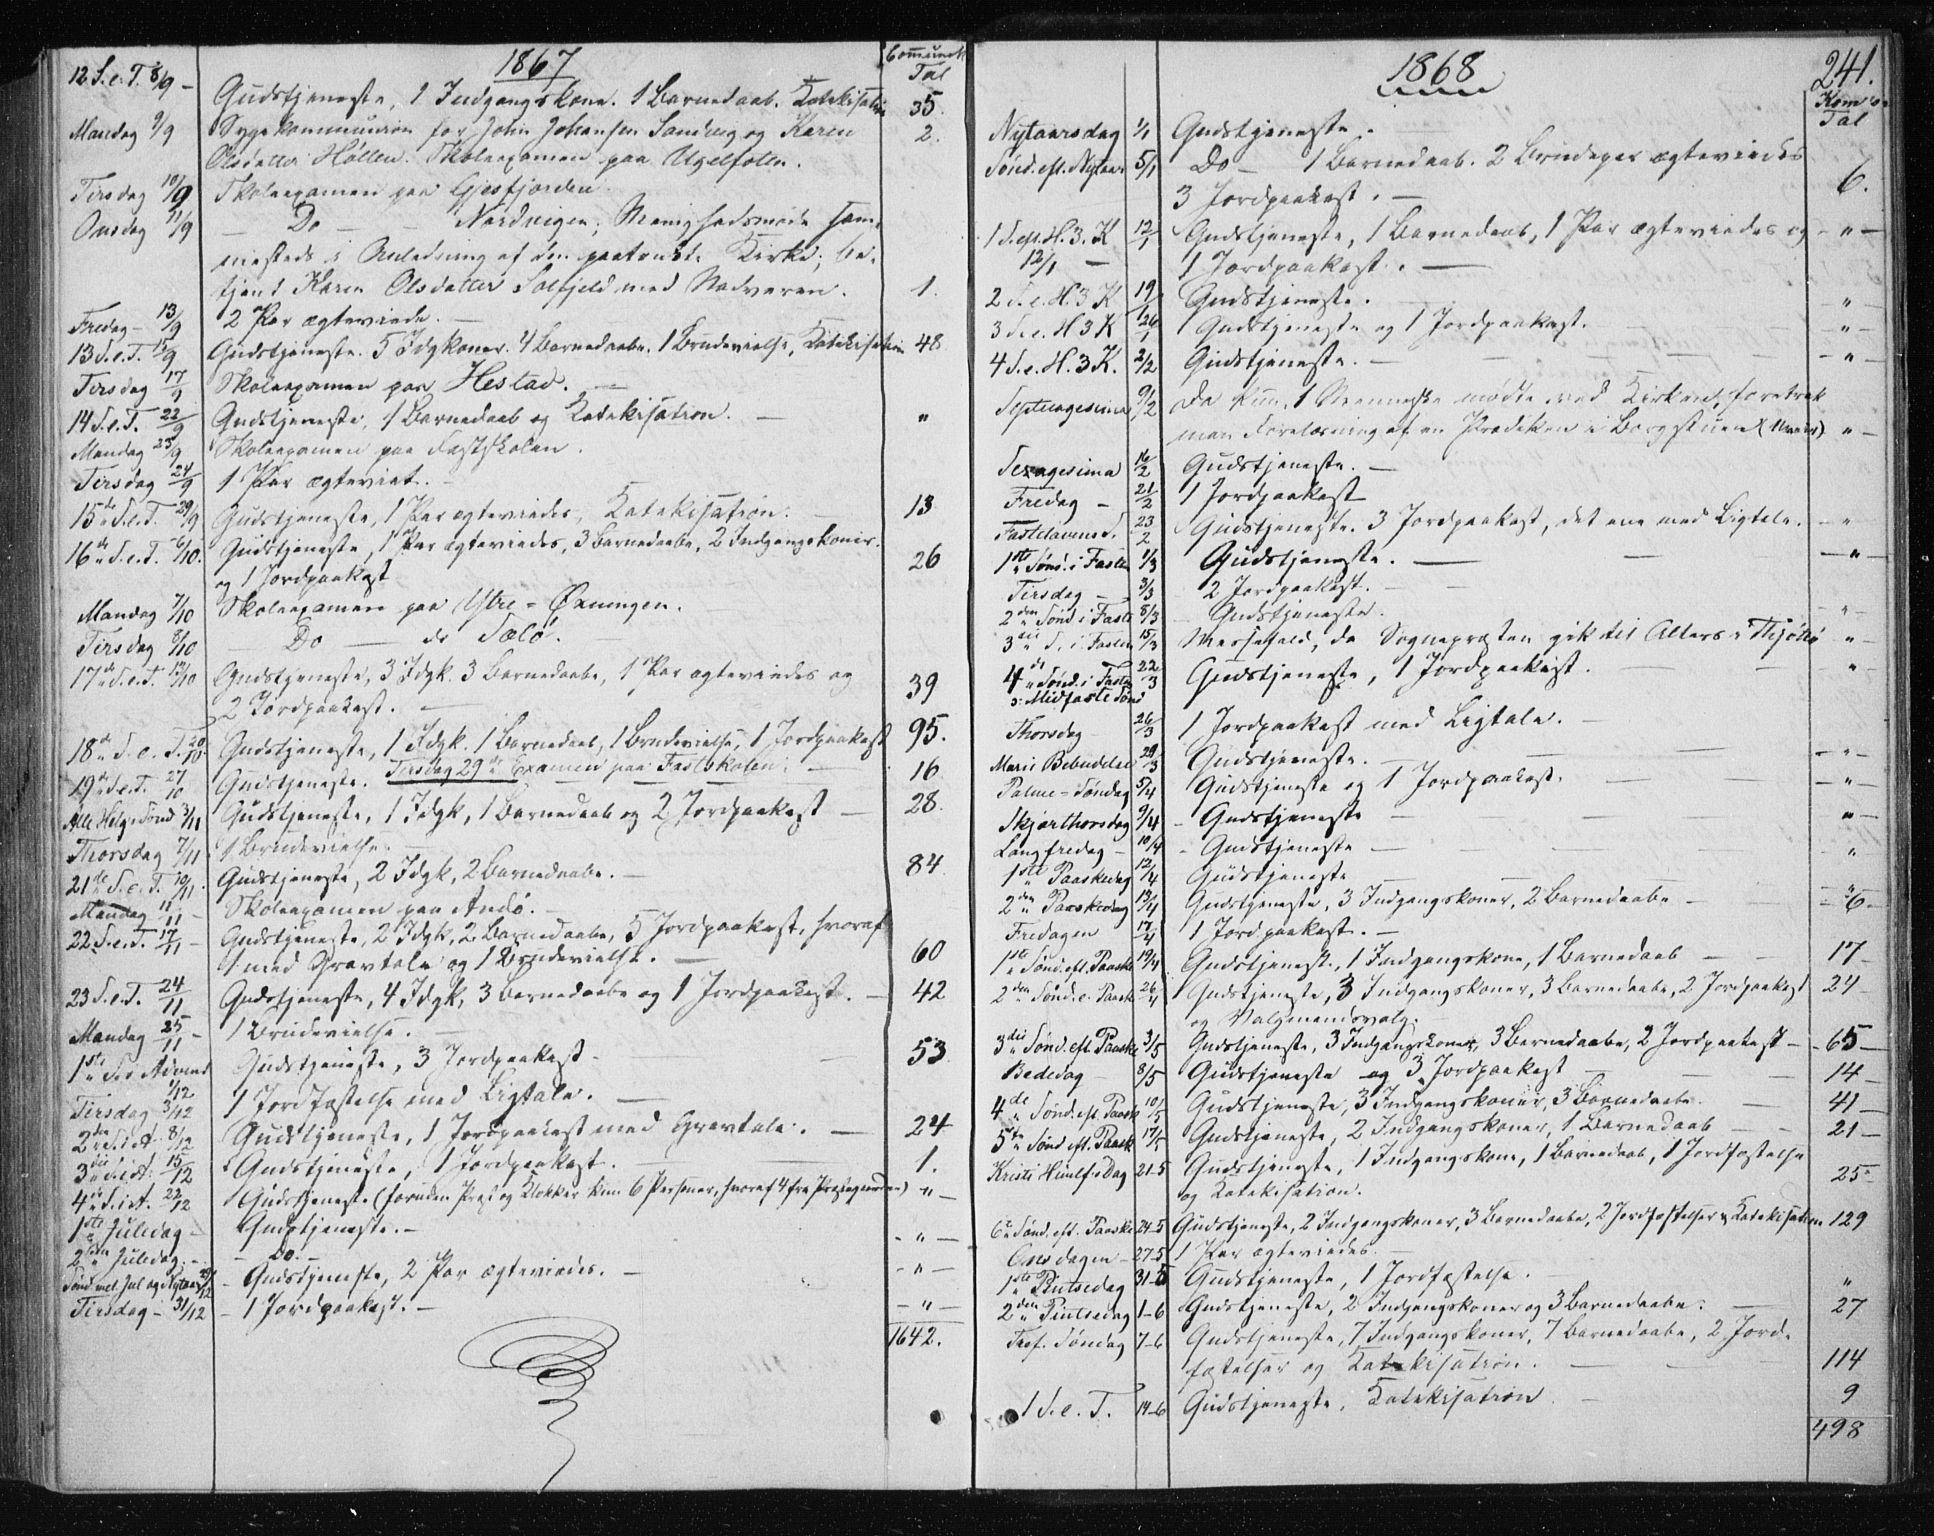 1867
Communik Tal
12 S. e. T. 8/9 – Gudstjeneste, 1 Indgangskone. 1 Barnedaab. Katekisation 35.
Mandag 9/9 Sygekommunion for John Johansen Sandvig og Karen 2.
Olsdatter Høllen. Skoleexamen paa Ugelfolen.
Tirsdag 10/9 Skoleexamen paa Gjesfjorden.
Onsdag 11/9 – Do – Nordvigen; Menighedsmøde sam-
mesteds i Anledning af den paatænkte Kirke; be-
tjent Karen Olsdatter Solfjeld med Nadveren. 1.
Fredag – 13/9 2 Par ægteviede. –
13 S. e. T. 15/9 Gudstjeneste. 5 Idgkoner. 4 Barnedaabe. 1 Brudevielse, Katekisation 48
Tirsdag 17/9 Skoleexamen paa Hestad. –
14 S. e. T. 22/9 Gudstjeneste, 1 Barnedaab og Katekisation. – "
Mandag 23/9 Skoleexamen paa Fastskolen.
Tirsdag 24/9 1 Par ægteviet. –
15de S. e. T. 29/9 Gudstjeneste, 1 Par ægteviedes, Katekisation. – 13
16de S. e. T. 6/10. Gudstjeneste, 1 Par ægteviedes, 3 Barnedaabe, 2 Indgangskoner.
og 1 Jordpaakast 26
Mandag 7/10 Skoleexamen paa Ytre-Øxningen.
Tirsdag 8/10 – Do – do Sælø.
17de S. e. T. 13/10 Gudstjeneste, 3 Idgk. 3 Barnedaabe, 1 Par ægteviedes og
2 Jordpaakast. – 39
18de S. e. T. 20/10 Gudstjeneste, 1 Idgk. 1 Barnedaab, 1 Brudevielse, 1 Jordpaakast 95.
19de S. e. T. 27/10 Gudstjeneste. Tirsdag 29de Examen paa Fastskolen. – 16
Alle Helg. Sønd 3/11 Gudstjeneste, 1 Idgk, 1 Barnedaab og 2 Jordpaakast – 28.
Thorsdag 7/11 1 Brudevielse. –
21de S. e. T. 10/11. Gudstjeneste, 2 Idgk, 2 Barnedaabe. – 84
Mandag 11/11 – Skoleexamen paa Andø. –
22 S. e. T. 17/11 – Gudstjeneste, 2 Idgk, 2 Barnedaabe, 5 Jordpaakast, hvoraf
1 med Gravtale og 1 Brudevielse. – 60
23 S. e. T. 24/11 Gudstjeneste, 4 Idgk, 3 Barnedaabe og 1 Jordpaakast. – 42
Mandag – 25/11 – 1 Brudevielse. –
1ste Søn Advent 1/12 Gudstjeneste, 3 Jordpaakast – 53
Tirsdag 3/12 1 Jordfæstelse med Ligtale. –
2den S. i A. 8/12 Gudstjeneste, 1 Jordpaakast med Gravtale. – 24
3die S. i A. 15/12 Gudstjeneste, 1 Jordpaakast. – 1.
4de S. i A. 22/12 Gudstjeneste (foruden Præst og Klokker kun 6 Personer, hvoraf 4 fra Præstegaarden) " –
1ste Juledag – Gudstjeneste. – – " –
2den Juledag. – – Do. –
Sønd. mel. Jul og Nytaar 29/12 – Gudstjeneste, 2 Par ægteviedes. – – " –
Tirsdag – 31/12 – 1 Jordpaakast. – – " –
1642.
1868
241.
Kom's Tal
Nytaarsdag 1/1 Gudstjeneste.
Sønd. eft. Nytaar 5/1 Do – 1 Barnedaab. 2 Brudepar ægteviedes
3 Jordpaakast. – 6.
1 S. eft. H. 3. K 12/1 Gudstjeneste, 1 Barnedaab, 1 Par ægteviedes og – " –
12/1 – 1 Jordpaakast. –
2 S. e. H. 3 K 19/1 Gudstjeneste. – "
3 S. e. H 3 K 26/1 Gudstjeneste og 1 Jordpaakast. – "
4 S. e. H. 3 K. 2/2 Gudstjeneste. – – " –
Septuagesima 9/2 Da kun 1 Menneske mødte ved Kirken, foretrak
man Forelæsning af en Prædiken i Borgstuen (Uveir) – " –
Sexagesima 16/2 Gudstjeneste. –
Fredag – 21/2 1 Jordpaakast
Fastelavens S. 23/2 Gudstjeneste. 3 Jordpaakast, det ene med Ligtale. – "
1ste Sønd. i Fasten 1/3 Gudstjeneste. – – " –
Tirsdag – 3/3 2 Jordpaakast. –
2den Sønd i Faste 8/3 – Gudstjeneste. – " –
3die S. i Fasten 15/3 Messefald, da Sognepræsten gik til Alters i Thjøttø – " –
4de Sønd. i Faste 22/3 Gudstjeneste, 1 Jordpaakast. – "
ɔ: Midfaste Sønd
Thorsdag 26/3 1 Jordpaakast med Ligtale. –
Mariæ Bebudelse 29/3 Gudstjeneste. – – " –
Palme-Søndag 5/4 Gudstjeneste og 1 Jordpaakast. – – "
Skjærthorsdag 9/4 – Gudstjeneste – " –
Langfredag – 10/4 – Gudstjeneste – "
1ste Paaskedag 12/4 Gudstjeneste – "
2den Paaskedag 13/4 Gudstjeneste, 3 Indgangskoner, 2 Barnedaabe – – 6 –
Fredagen 17/4 1 Jordpaakast. –
1ste Sønd. eft. Paaske 19/4 Gudstjeneste, 1 Indgangskone, 1 Barnedaab – 17 –
2den Sønd. e. Paask 26/4 Gudstjeneste, 3 Indgangskoner, 3 Barnedaabe, 2 Jordpaakast 24 –
og Valgmandsvalg.
3die Sønd. eft. Paaske 3/5 Gudstjeneste, 3 Indgangskoner, 3 Barnedaabe, 2 Jordpaakast – 65 –
Bededag – 8/5 Gudstjeneste og 3 Jordpaakast – 14 –
4de Sønd. eft. Paask 10/5 Gudstjeneste, 3 Indgangskoner, 3 Barnedaabe. – 41 –
5te Sønd eft. Paask 17/5 Gudstjeneste, 2 Indgangskoner, 1 Barnedaab – 21 –
Kristi Himlfs Dag 21-5 Gudstjeneste, 1 Indgangskone, 1 Barnedaab, 1 Jordfæstelse
og Katekisation. 25 –
6te Sønd. eft. Paaske 24-5 Gudstjeneste, 2 Indgangskoner, 3 Barnedaabe, 2 Jordfæstelser og Katekisation 129
Onsdagen – 27-5 1 Par ægteviedes. –
1ste Pintsedag 31-5 Gudstjeneste, 1 Jordfæstelse. – "
2den Pintsedag 1-6 Gudstjeneste, 2 Indgangskoner og 3 Barnedaabe. – 27
Tref. Søndag 7-6 Gudstjeneste, 7 Indgangskoner, 7 Barnedaabe, 2 Jord-
fæstelser og Katekisation. – 114
1 S. e. T. 14-6 Gudstjeneste, Katekisation – 9
498